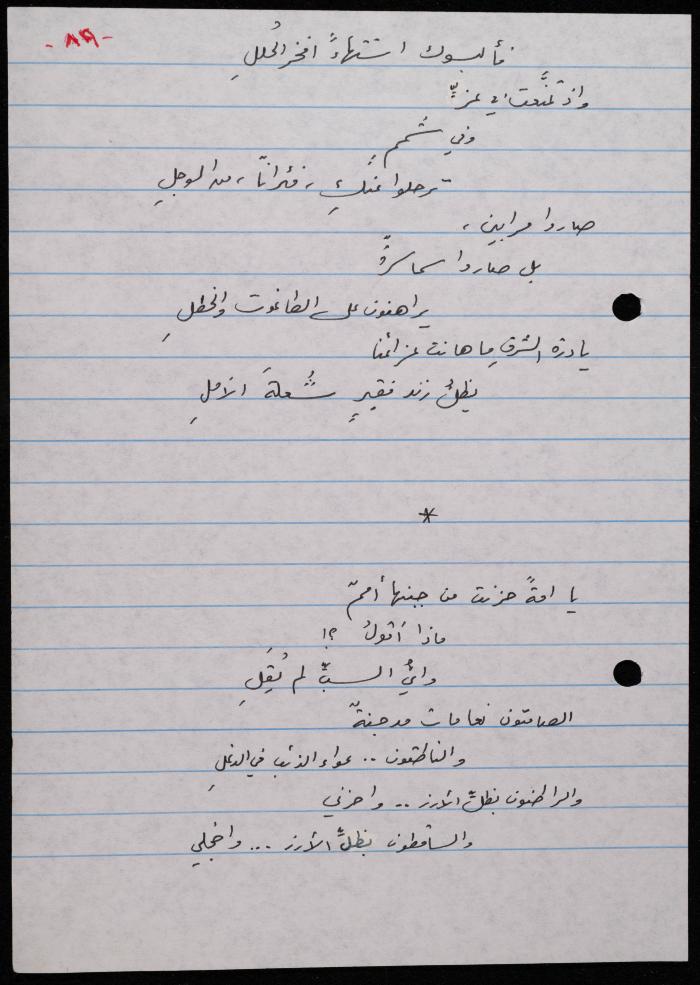 -٨٩-
فألبسوك اشتهاءً أفخر الحُللِ
واذ تمنَّعتِ في عزٍّ
وفي شممٍ
ترحلوا عنكِ، فئراناً، من الوجلِ
صاروا مرابين،
بل صاروا سماسرةً
يراهنون على الطاغوت والخطلِ
يا درة الشرق ما هانت عزائمنا
يظلُ زند فقيرٍ شُعلةَ الأملِ
*
يا امةً هزئت من جبنها أممٌ
ماذا أقولُ ؟!
وايُّ السبِّ لم يُقلِ
الصامتون نعامات مدجنةٌ
والناطقون .. عواء الذئب في الدغلِ
والراكضون بظلِّ الأرز .. واحزني
والساقطون بظلِّ الأرز ... واخجلي